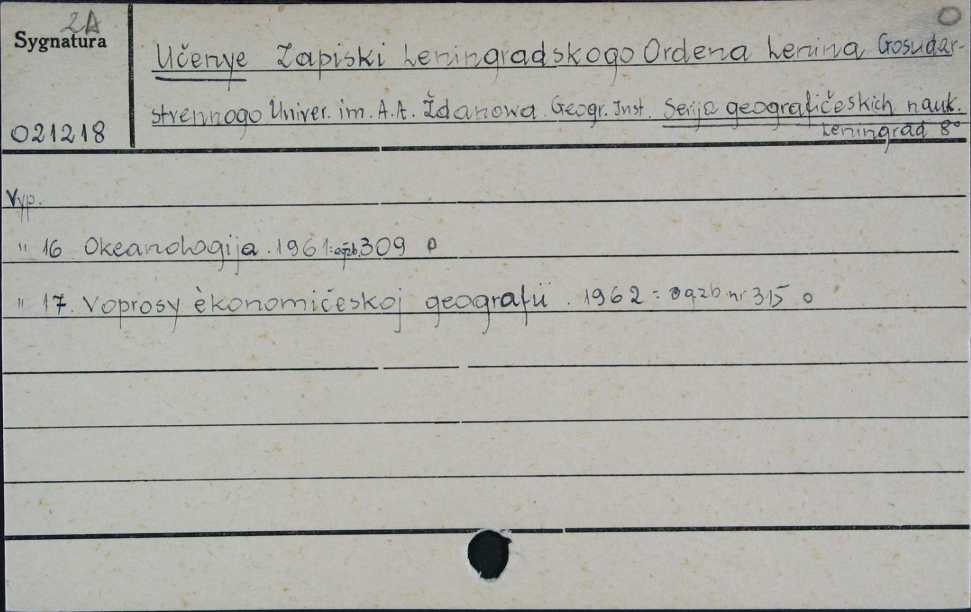 2A
O
Sygnatura
Učenye Zapiski Leningradskogo Ordena Lenina Gosudar-
stvennogo Univer. im. A.A. Ždanowa. Geogr. Inst. Serija geografičeskich nauk.
021218
Leningrad 8°
Vyp.
" 16 Okeanologija. 1961 = egzb. 309 o
" 17. Voprosy èkonomičeskoj geografii. 1962 = egzb nr 315 o